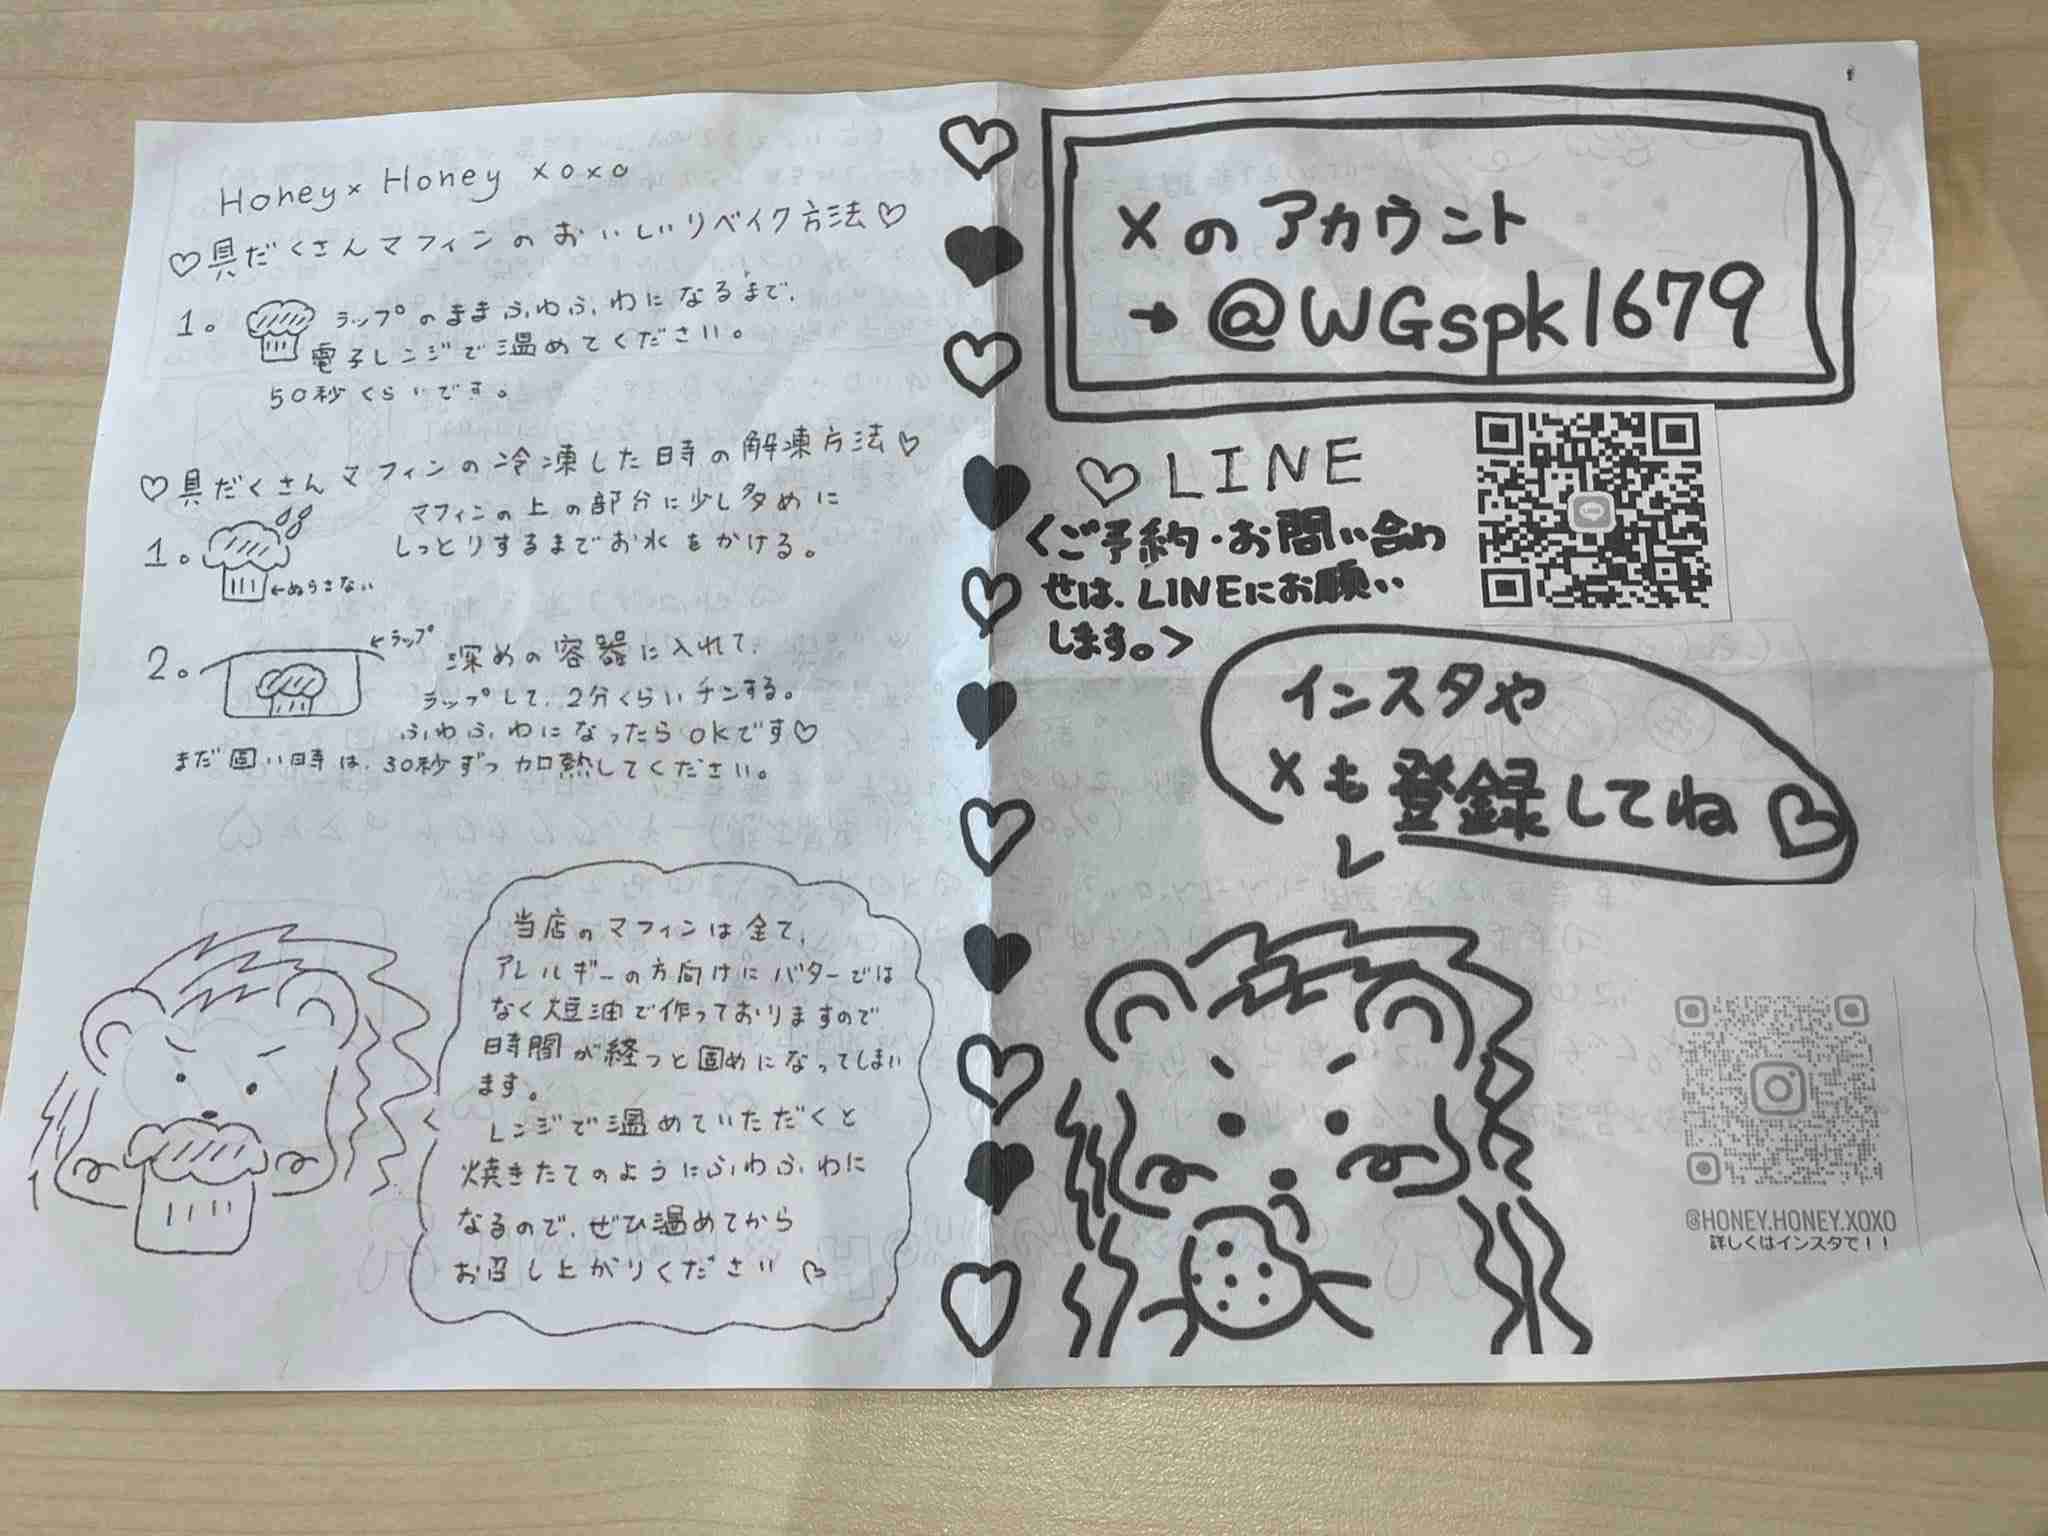 Honey×Honey xoxo
♡具だくさんマフィンのおいしいリベイク方法♡
1。ラップのままふわふわになるまで、
電子レンジで温めてください。
50秒くらいです。
♡具だくさんマフィンの冷凍した時の解凍方法♡
1。マフィンの上の部分に少し多めに
しっとりするまでお水をかける。
←ぬらさない
2。←ラップ
深めの容器に入れて、
ラップして、2分くらいチンする。
ふわふわになったらokです♡
まだ固い時は、30秒ずつ加熱してください。
当店のマフィンは全て、
アレルギーの方向けにバターでは
なく大豆油で作っておりますので
時間が経つと固めになってしまい
ます。
レンジで温めていただくと
焼きたてのようにふわふわに
なるので、ぜひ温めてから
お召し上がりください♡
Xのアカウント
→@WGspk1679
♡LINE
<ご予約・お問い合わ
せは、LINEにお願い
します。>
インスタや
Xも登録してね♡
@HONEY.HONEY.XOXO
詳しくはインスタで！！